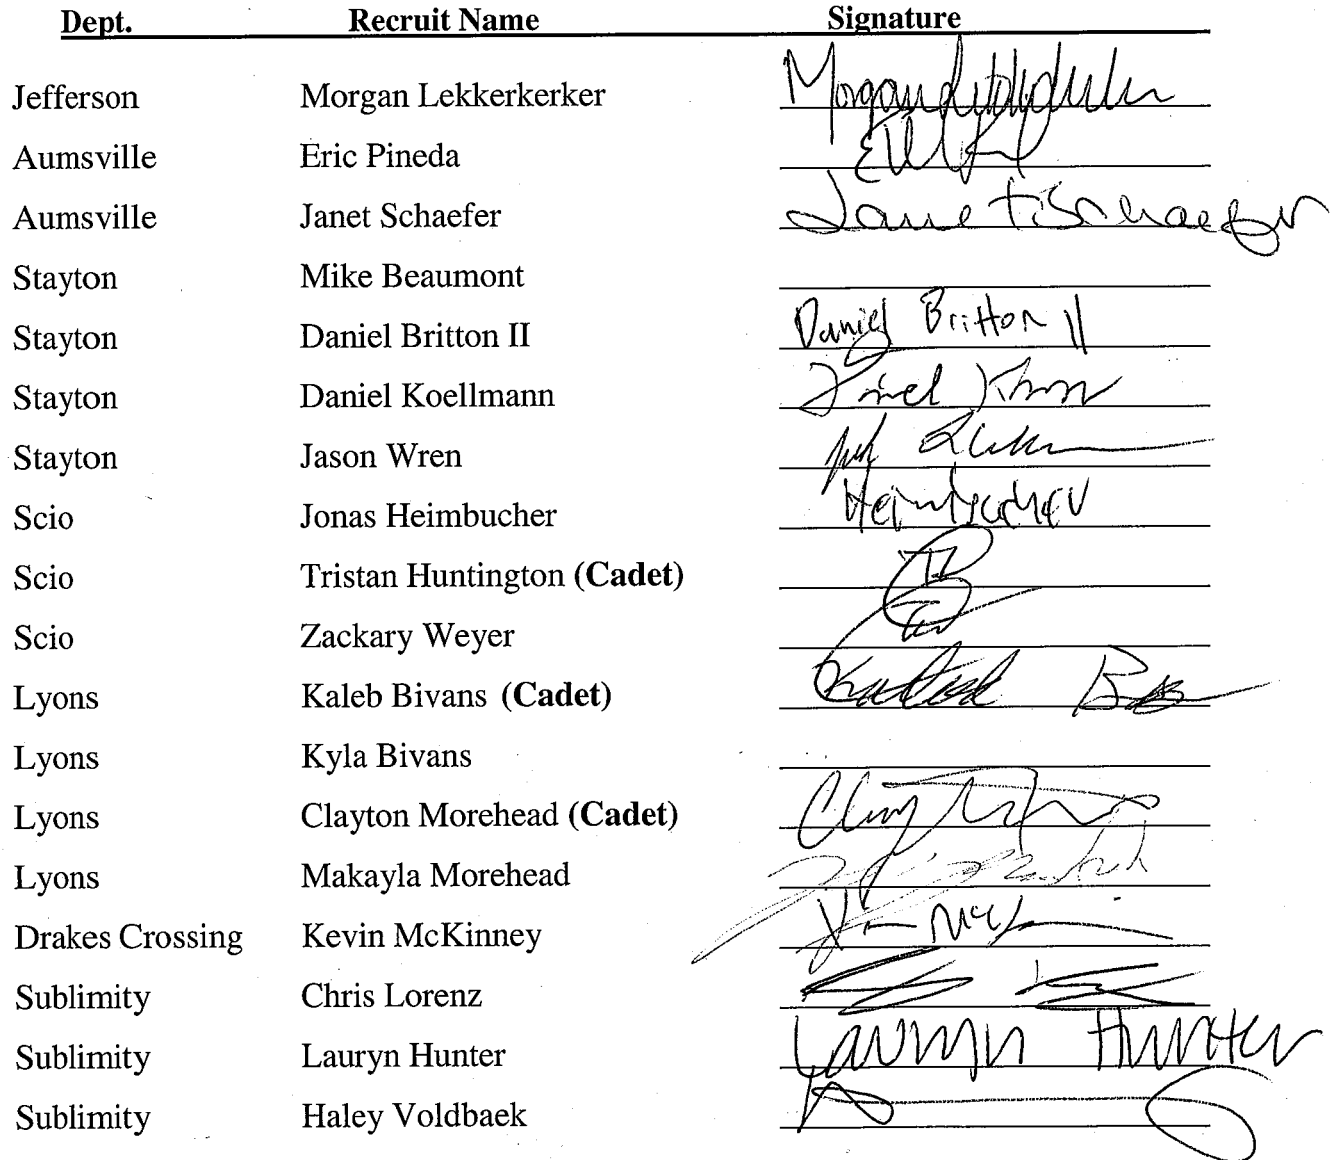 Dept. Recruit Name Signature
Jefferson Morgan Lekkerkerker Morgan
Aumsville Eric Pineda
Aumsville Janet Schaefer Janet Schaefer
Stayton Mike Beaumont
Stayton Daniel Britton II Daniel Britton II
Stayton Daniel Koellmann
Stayton Jason Wren
Scio Jonas Heimbucher Heimbucher
Scio Tristan Huntington (Cadet)
Scio Zackary Weyer
Lyons Kaleb Bivans (Cadet)
Lyons Kyla Bivans
Lyons Clayton Morehead (Cadet)
Lyons Makayla Morehead
Drakes Crossing Kevin McKinney
Sublimity Chris Lorenz
Sublimity Lauryn Hunter Lauryn Hunter
Sublimity Haley Voldbaek